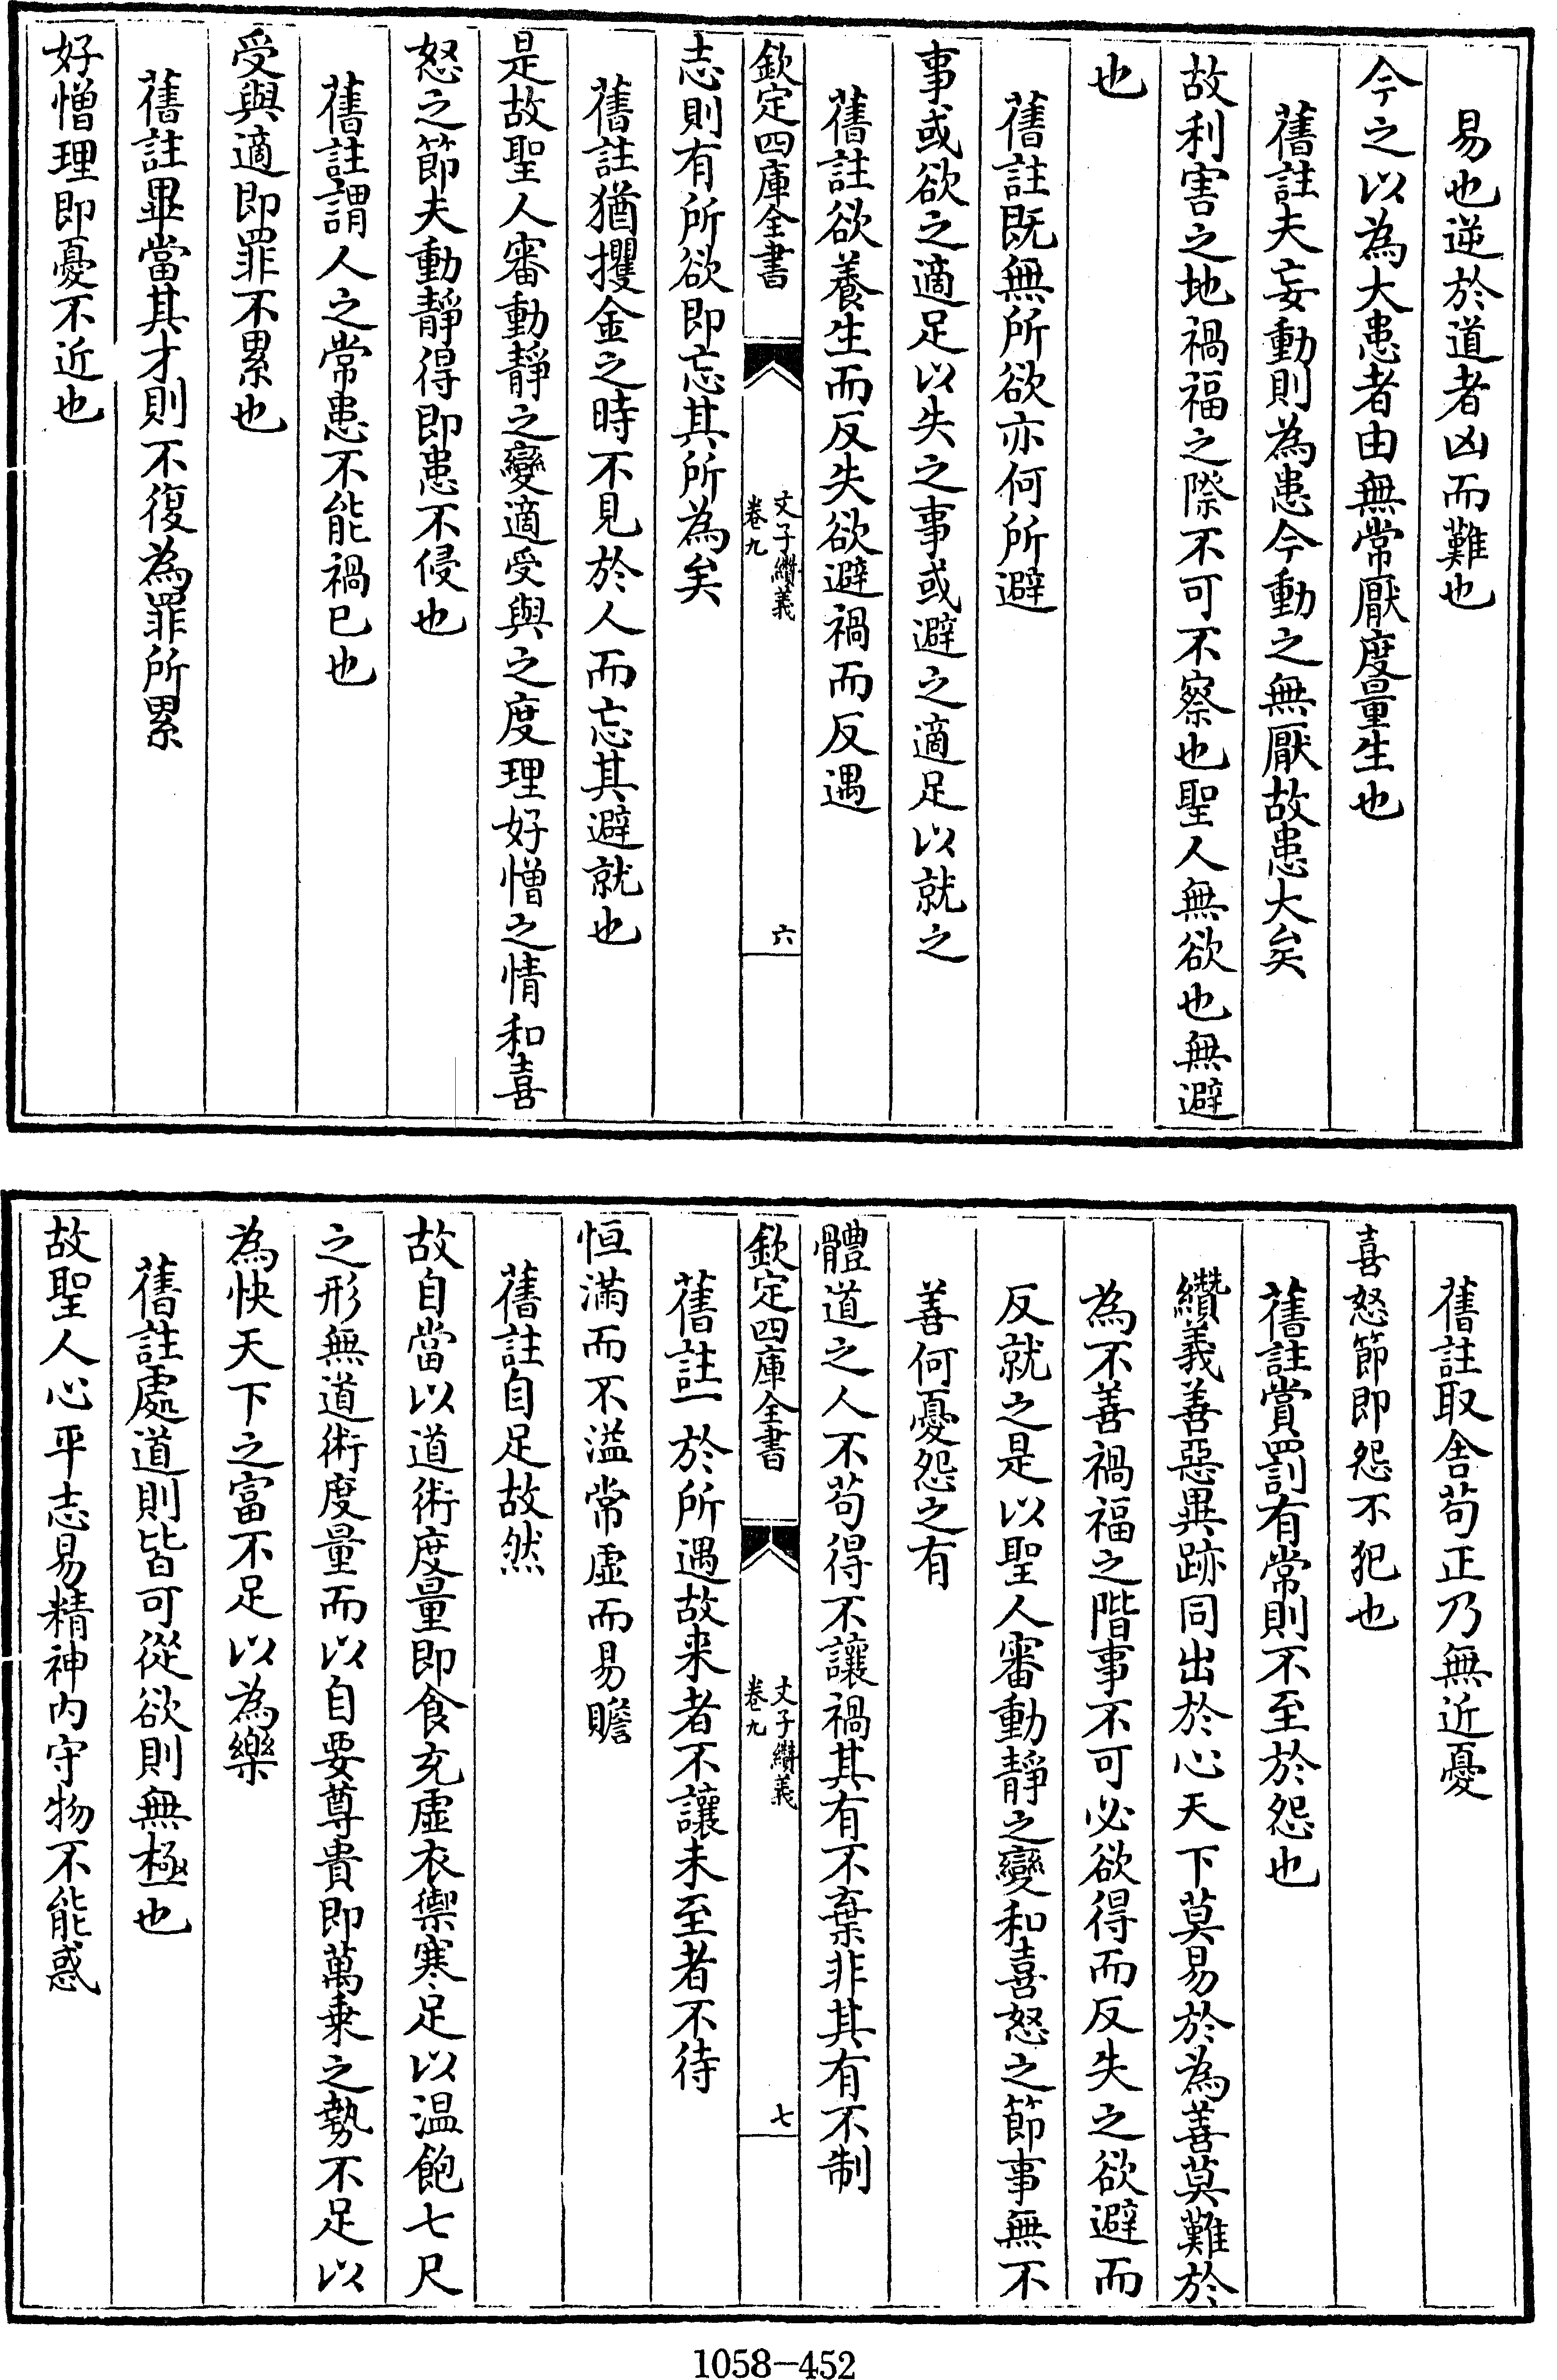 易也逆於道者凶而難也
今之以為大患者由無常厭度量生也
舊註夫妄動則為患今動之無厭故患大矣
故利害之地禍福之際不可不察也聖人無欲也無避
也
舊註既無所欲亦何所避
事或欲之適足以失之事或避之適足以就之
舊註欲養生而反失欲避禍而反遇
欽定四庫全書
文子纘義
卷九
六
志則有所欲即忘其所為矣
舊註猶攫金之時不見於人而忘其避就也
是故聖人審動靜之變適受與之度理好憎之情和喜
怒之節夫動靜得即患不侵也
舊註謂人之常患不能禍已也
受與適即罪不累也
舊註畀當其才則不復為罪所累
好憎理即憂不近也
舊註取舍苟正乃無近憂
喜怒節即怨不犯也
舊註賞罰有常則不至於怨也
纘義善惡異跡同出於心天下莫易於為善莫難於
為不善禍福之階事不可必欲得而反失之欲避而
反就之是以聖人審動靜之變和喜怒之節事無不
善何憂怨之有
體道之人不苟得不讓禍其有不棄非其有不制
欽定四庫全書
文子纘義
卷九
七
舊註一於所遇故来者不讓未至者不待
恒滿而不溢常虛而易贍
舊註自足故然
故自當以道術度量即食充虛衣禦寒足以温飽七尺
之形無道術度量而以自要尊貴即萬乗之勢不足以
為快天下之富不足以為樂
舊註處道則皆可從欲則無極也
故聖人心平志易精神内守物不能惑
1058-452